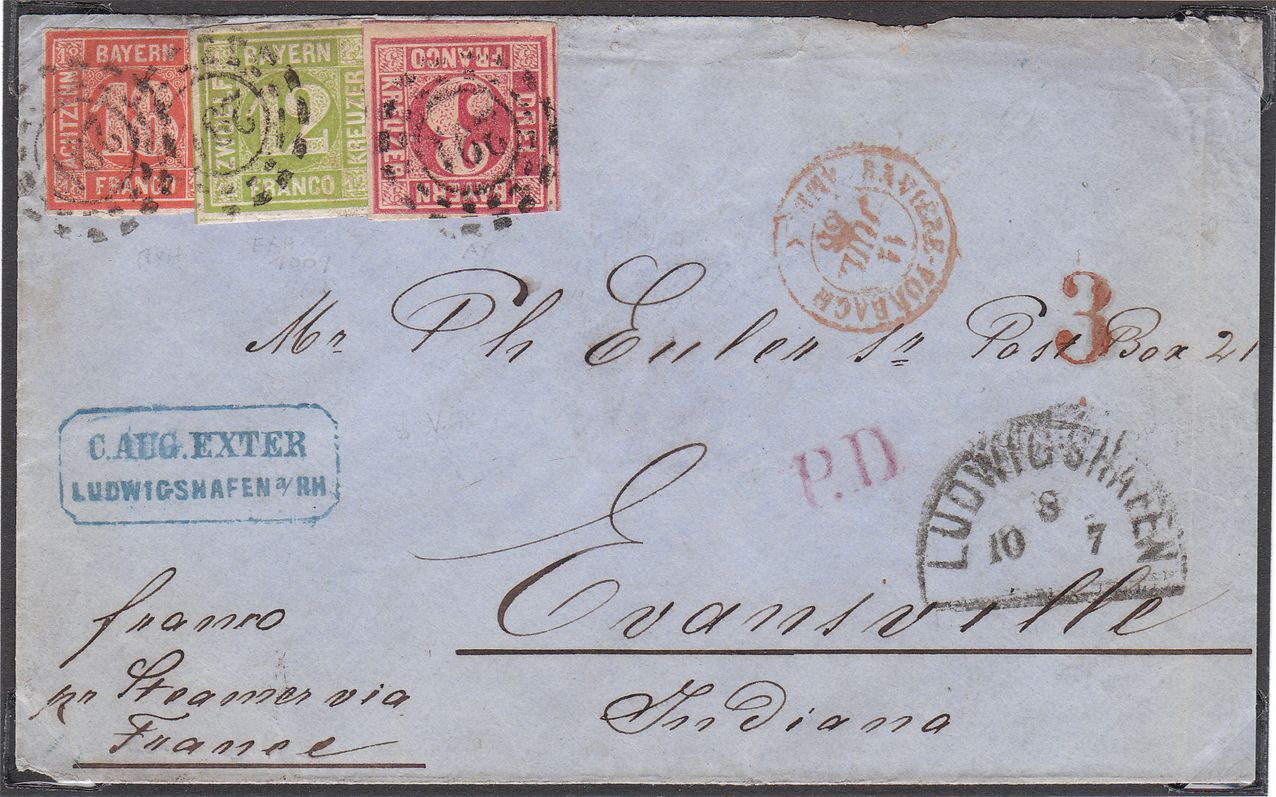 BAYERN
ACHTZEHN
18
FRANCO
BAYERN
ZWÖLF
12
KREUZER
FRANCO
BAYERN
DREI
3
KREUZER
FRANCO
BAVIERE-FORBACH
11
JUIL
3
Mr Ph Euler Sr Post Box 21
C. AUG. EXTER
LUDWIGSHAFEN a/RH.
P.D
LUDWIGSHAFEN
8
10 7
Evansville
Indiana
franco
pr Steamer via
France